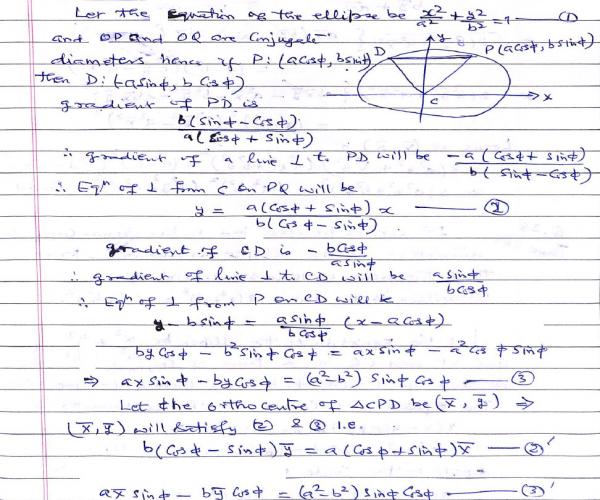 Let the equation of the ellipse be x²/a² + y²/b² = 1 — (1)
and OP and OQ are Conjugate
diameters hence if P: (a cosφ, b sinφ)
then D: (-a sinφ, b cosφ)
y
D
P(a cosφ, b sinφ)
C
x
gradient of PD is
b(sinφ - cosφ) / a(cosφ + sinφ)
∴ gradient of a line ⊥ to PD will be - a(cosφ + sinφ) / b(sinφ - cosφ)
∴ Eqⁿ of ⊥ from C on PQ will be
y = a(cosφ + sinφ) / b(cosφ - sinφ) x — (2)
gradient of CD is - b cosφ / a sinφ
∴ gradient of line ⊥ to CD will be a sinφ / b cosφ
∴ Eqⁿ of ⊥ from P on CD will be
y - b sinφ = a sinφ / b cosφ (x - a cosφ)
by cosφ - b² sinφ cosφ = ax sinφ - a² cosφ sinφ
⇒ ax sinφ - by cosφ = (a² - b²) sinφ cosφ — (3)
Let the orthocentre of ΔCPD be (x̄, ȳ) ⇒
(x̄, ȳ) will satisfy (2) & (3) i.e.
b(cosφ - sinφ) ȳ = a(cosφ + sinφ) x̄ — (2)'
ax̄ sinφ - bȳ cosφ = (a² - b²) sinφ cosφ — (3)'